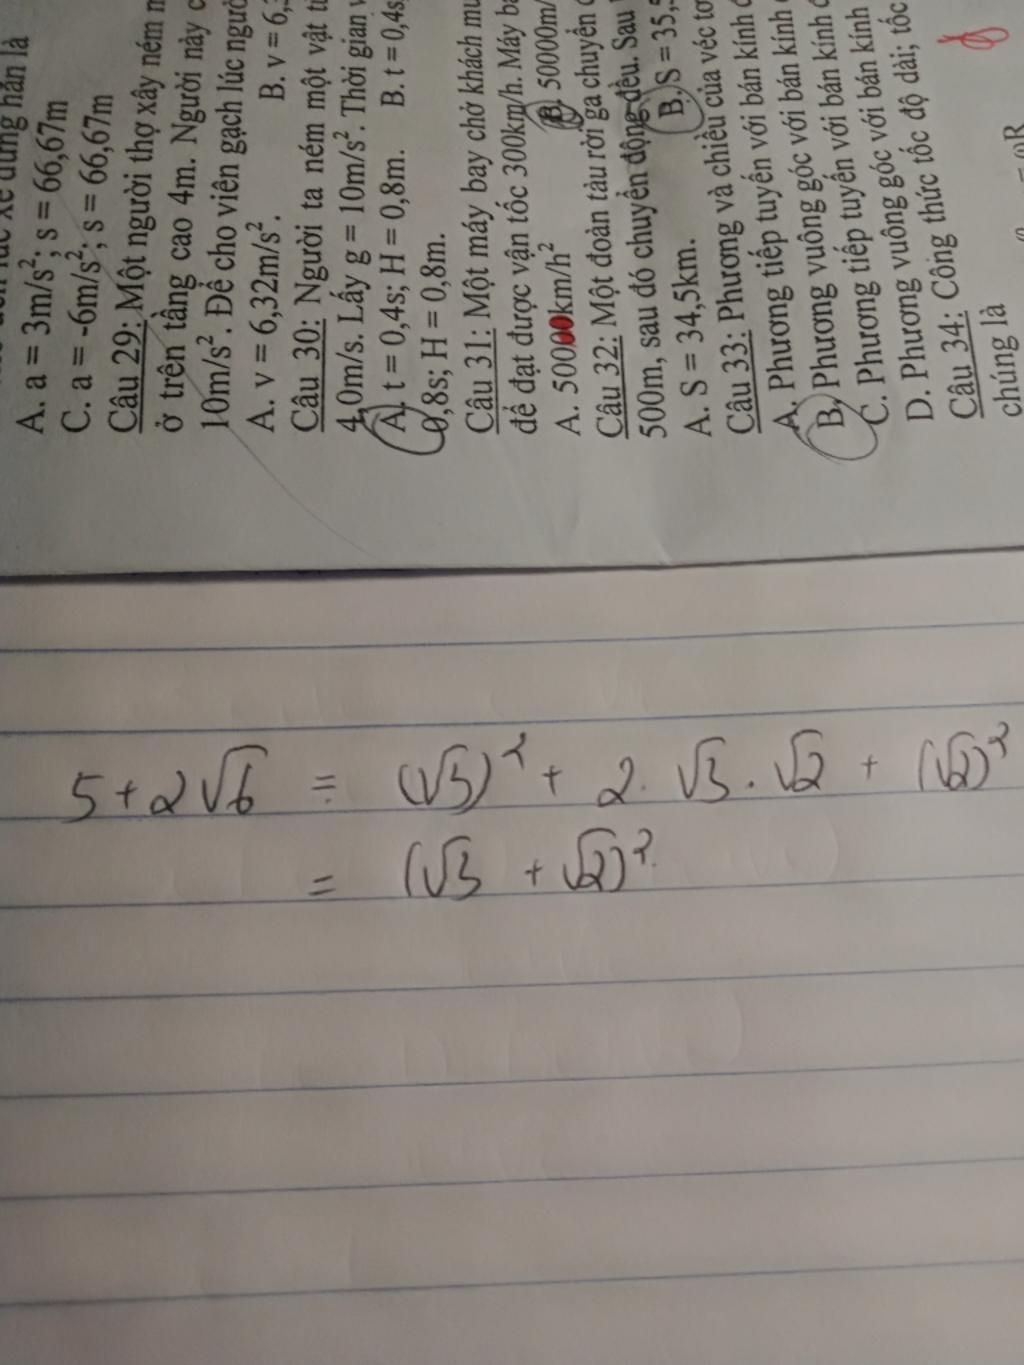 A. a = 3m/s²; s = 66,67m
C. a = -6m/s²; s = 66,67m
Câu 29: Một người thợ xây ném
ở trên tầng cao 4m. Người này
10m/s². Để cho viên gạch lúc
A. v = 6,32m/s². B. v = 6,
Câu 30: Người ta ném một vật
4,0m/s. Lấy g = 10m/s². Thời gian
A. t = 0,4s; H = 0,8m. B. t = 0,4s
0,8s; H = 0,8m.
Câu 31: Một máy bay chở khách
để đạt được vận tốc 300km/h. Máy
A. 50000km/h² B. 50000m/
Câu 32: Một đoàn tàu rời ga chuyển
500m, sau đó chuyển động đều. Sau
A. S = 34,5km. B. S = 35,
Câu 33: Phương và chiều của véc
A. Phương tiếp tuyến với bán kính
B. Phương vuông góc với bán kính
C. Phương tiếp tuyến với bán kính
D. Phương vuông góc với bán kính
Câu 34: Công thức tốc độ dài; tốc
chúng là
5 + 2√6 = (√3)² + 2. √3 . √2 + (√2)²
= (√3 + √2)²